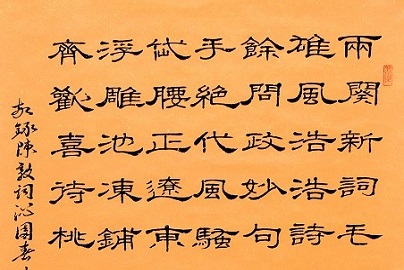 兩闋新詞毛
雄風浩浩詩
餘問政妙句
手絕代風騷
岱腰正遼東
浮雕池凍鋪
齊歡喜待桃
錄陳毅詞沁園春